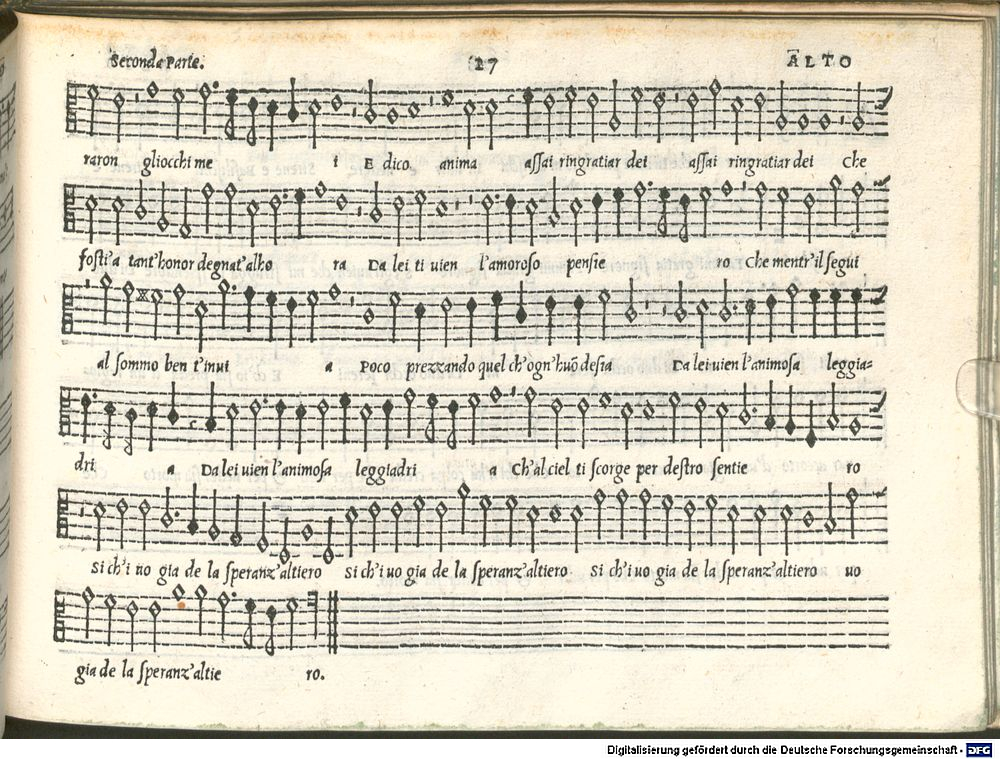 Seconda Parte. 27 ALTO
raron gliocchi me i E dico anima assai ringratiar dei assai ringratiar dei che
fosti'a tant'honor degnat'alho ra Da lei ti uien l'amoroso pensie ro Che mentr'il segui
al sommo ben t'inui a Poco prezzando quel ch'ogn'huõ desia Da lei uien l'animosa leggia=
dri a Da lei uien l'animosa leggiadri a Ch'al ciel ti scorge per destro sentie ro
si ch'i uo gia de la speranz'altiero si ch'i uo gia de la speranz'altiero si ch'i uo gia de la speranz'altiero uo
gia de la speranz'altie ro.
Digitalisierung gefördert durch die Deutsche Forschungsgemeinschaft - DFG